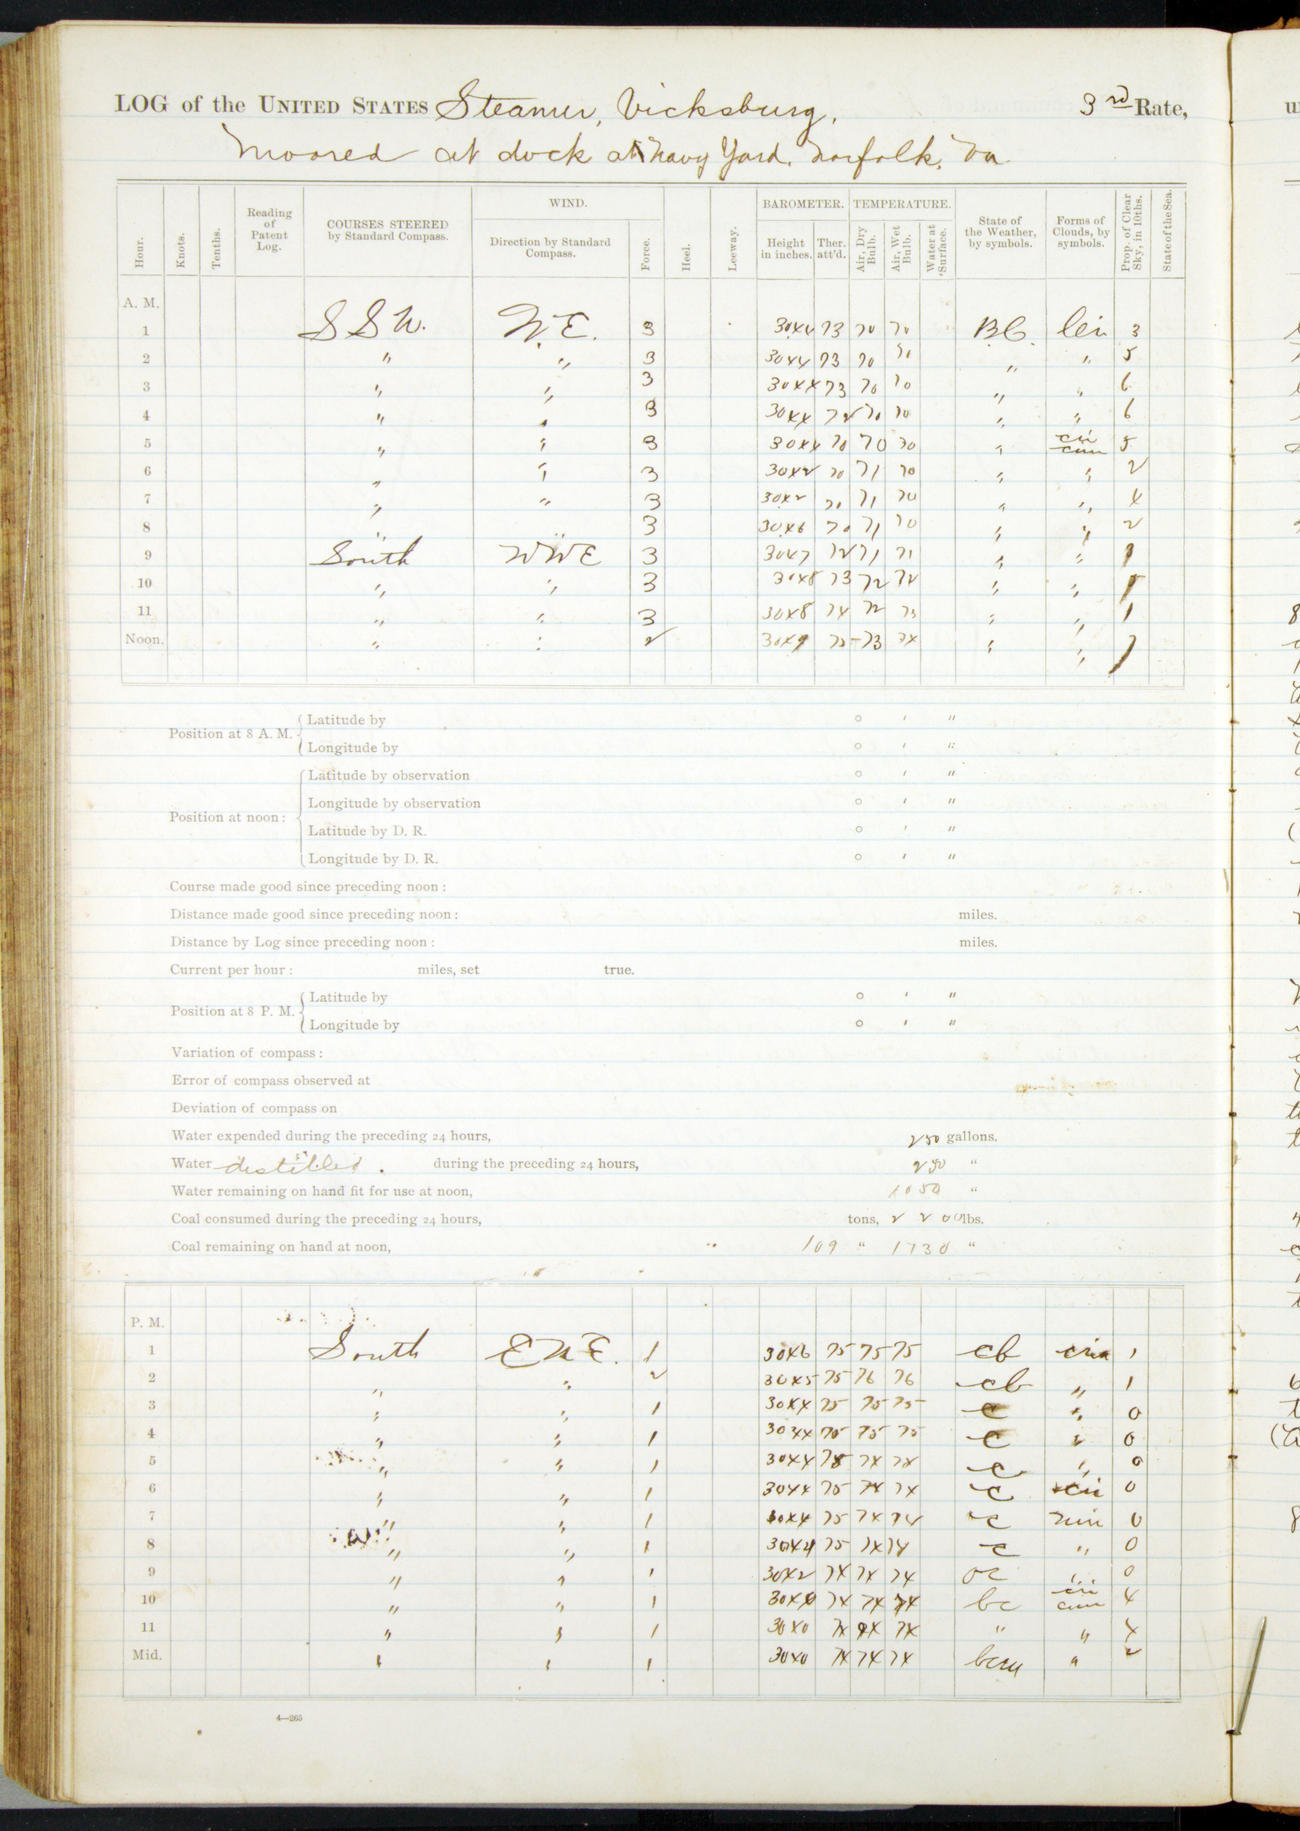 LOG of the UNITED STATES Steamer, Vicksburg, 3rd Rate,
Moored at dock at Navy Yard, Norfolk, Va
Hour. Knots. Tenths. Reading of Patent Log. COURSES STEERED by Standard Compass. WIND. Direction by Standard Compass. Force. Heel. Leeway. BAROMETER. Height in inches. Ther. att'd. TEMPERATURE. Air, Dry Bulb. Air, Wet Bulb. Water at Surface. State of the Weather, by symbols. Forms of Clouds, by symbols. Prop. of Clear Sky, in 10ths. State of the Sea.
A. M.
1 S S W. N. E. 3 3044 73 70 70 B.C. Cir 3
2 " " 3 3044 73 70 70 " " 5
3 " " 3 3044 73 70 70 " " 6
4 " " 3 3044 72 70 70 " " 6
5 " " 3 3044 70 70 70 " cir cum 5
6 " " 3 3042 70 71 70 " " 2
7 " " 3 3042 70 71 70 " " 4
8 " " 3 3046 70 71 70 " " 2
9 South NNE 3 3047 72 71 71 " " 1
10 " " 3 3048 73 72 72 " " 1
11 " " 3 3048 74 72 73 " " 1
Noon. " " 2 3049 75 73 74 " " 1
Position at 8 A. M. Latitude by ° ' "
Longitude by ° ' "
Position at noon: Latitude by observation ° ' "
Longitude by observation ° ' "
Latitude by D. R. ° ' "
Longitude by D. R. ° ' "
Course made good since preceding noon:
Distance made good since preceding noon: miles.
Distance by Log since preceding noon: miles.
Current per hour: miles, set true.
Position at 8 P. M. Latitude by ° ' "
Longitude by ° ' "
Variation of compass:
Error of compass observed at
Deviation of compass on
Water expended during the preceding 24 hours, 250 gallons.
Water distilled. during the preceding 24 hours, 250 "
Water remaining on hand fit for use at noon, 1050 "
Coal consumed during the preceding 24 hours, tons, 2200 lbs.
Coal remaining on hand at noon, 109 " 1730 "
P. M.
1 South ENE. 1 3046 75 75 75 cb cir 1
2 " " 2 3045 75 76 76 cb " 1
3 " " 1 3044 75 75 75 c " 0
4 " " 1 3044 75 75 75 c " 0
5 " " 1 3044 75 74 74 c " 0
6 " " 1 3044 75 74 74 c cir 0
7 " " 1 3044 75 74 74 c nim 0
8 " " 1 3044 75 74 74 c " 0
9 " " 1 3042 74 74 74 oc " 0
10 " " 1 3040 74 74 74 bc cir cum 4
11 " " 1 3040 74 74 74 " " 4
Mid. " " 1 3040 74 74 74 bcm " 2
4—265